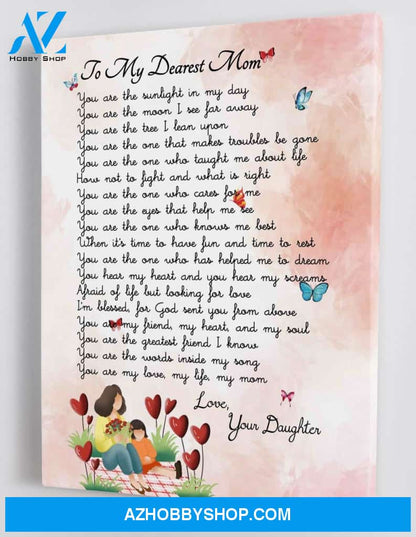 AZ
HOBBY SHOP
To My Dearest Mom
You are the sunlight in my day
You are the moon I see far away
You are the tree I lean upon
You are the one that makes troubles be gone
You are the one who taught me about life
How not to fight and what is right
You are the one who cares for me
You are the eyes that help me see
You are the one who knows me best
When it's time to have fun and time to rest
You are the one who has helped me to dream
You hear my heart and you hear my screams
Afraid of life but looking for love
I'm blessed, for God sent you from above
You are my friend, my heart, and my soul
You are the greatest friend I know
You are the words inside my song
You are my love, my life, my mom
Love,
Your Daughter
AZHOBBYSHOP.COM